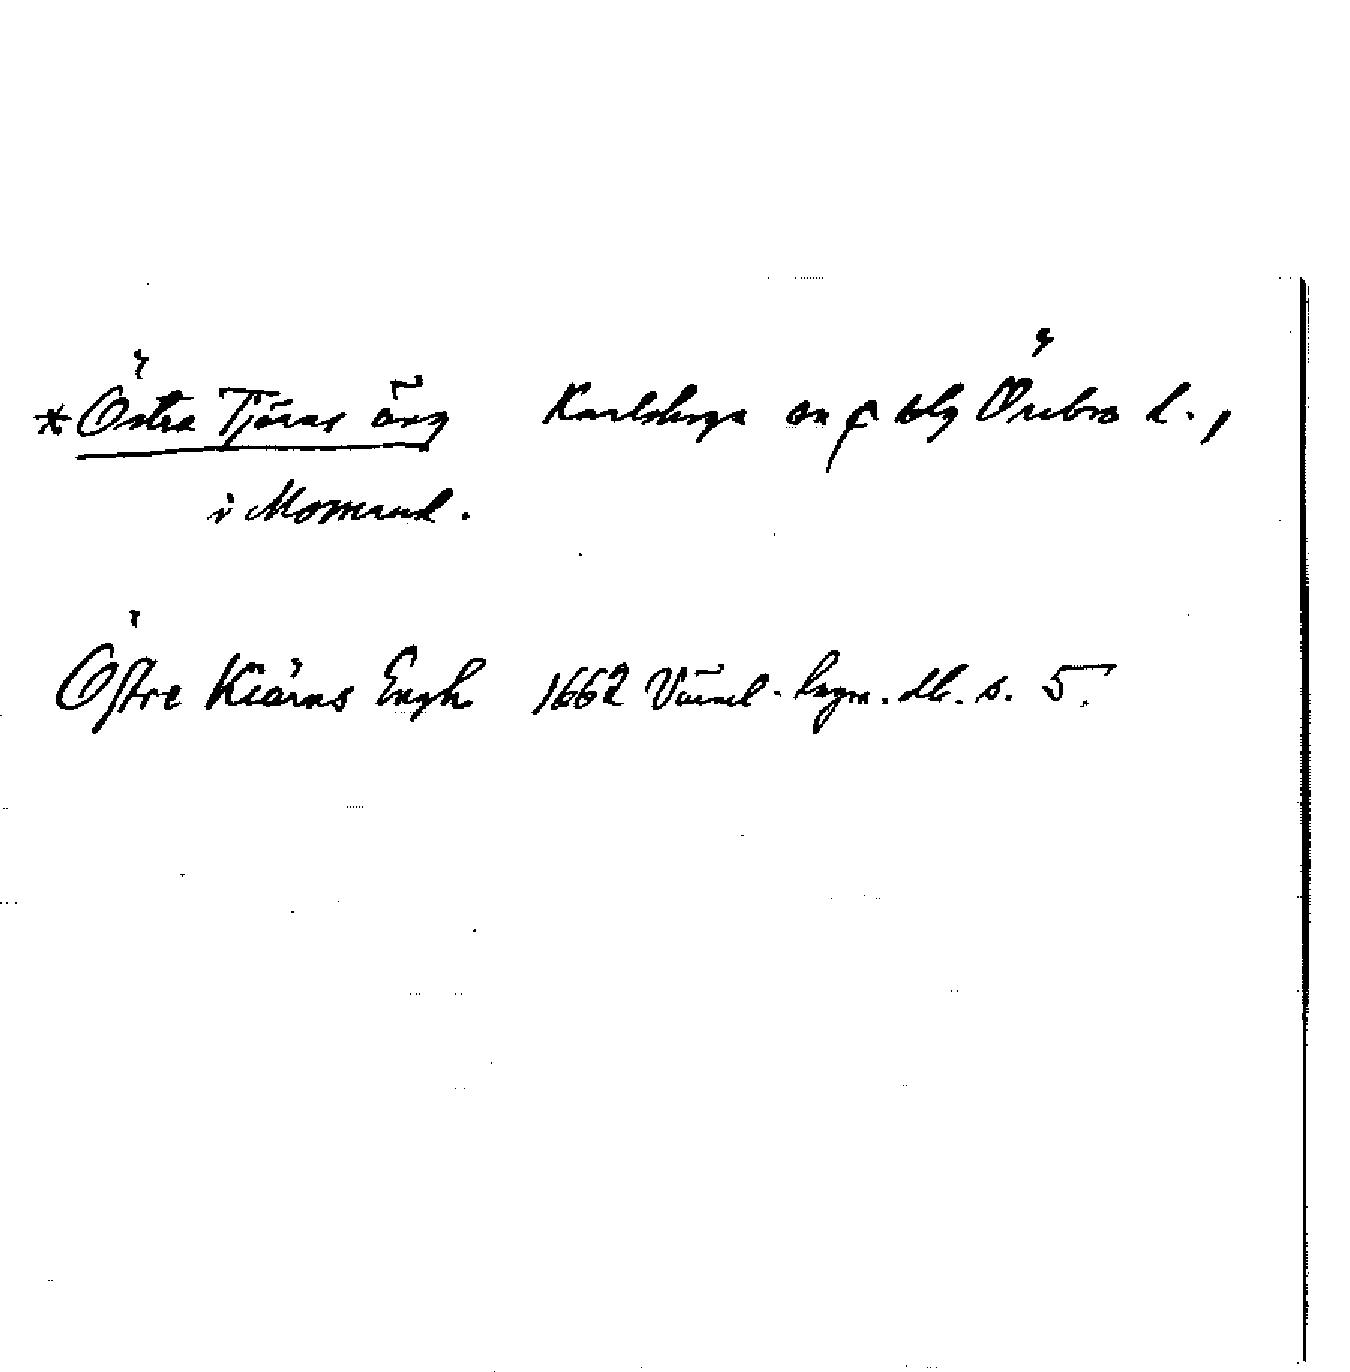 *Östra Tjärns äng Karlskoga sn o blg Örebro l.,
i Mosserud.
Östre Kiärns Engh 1662 Värml. lagm. db. s. 5.